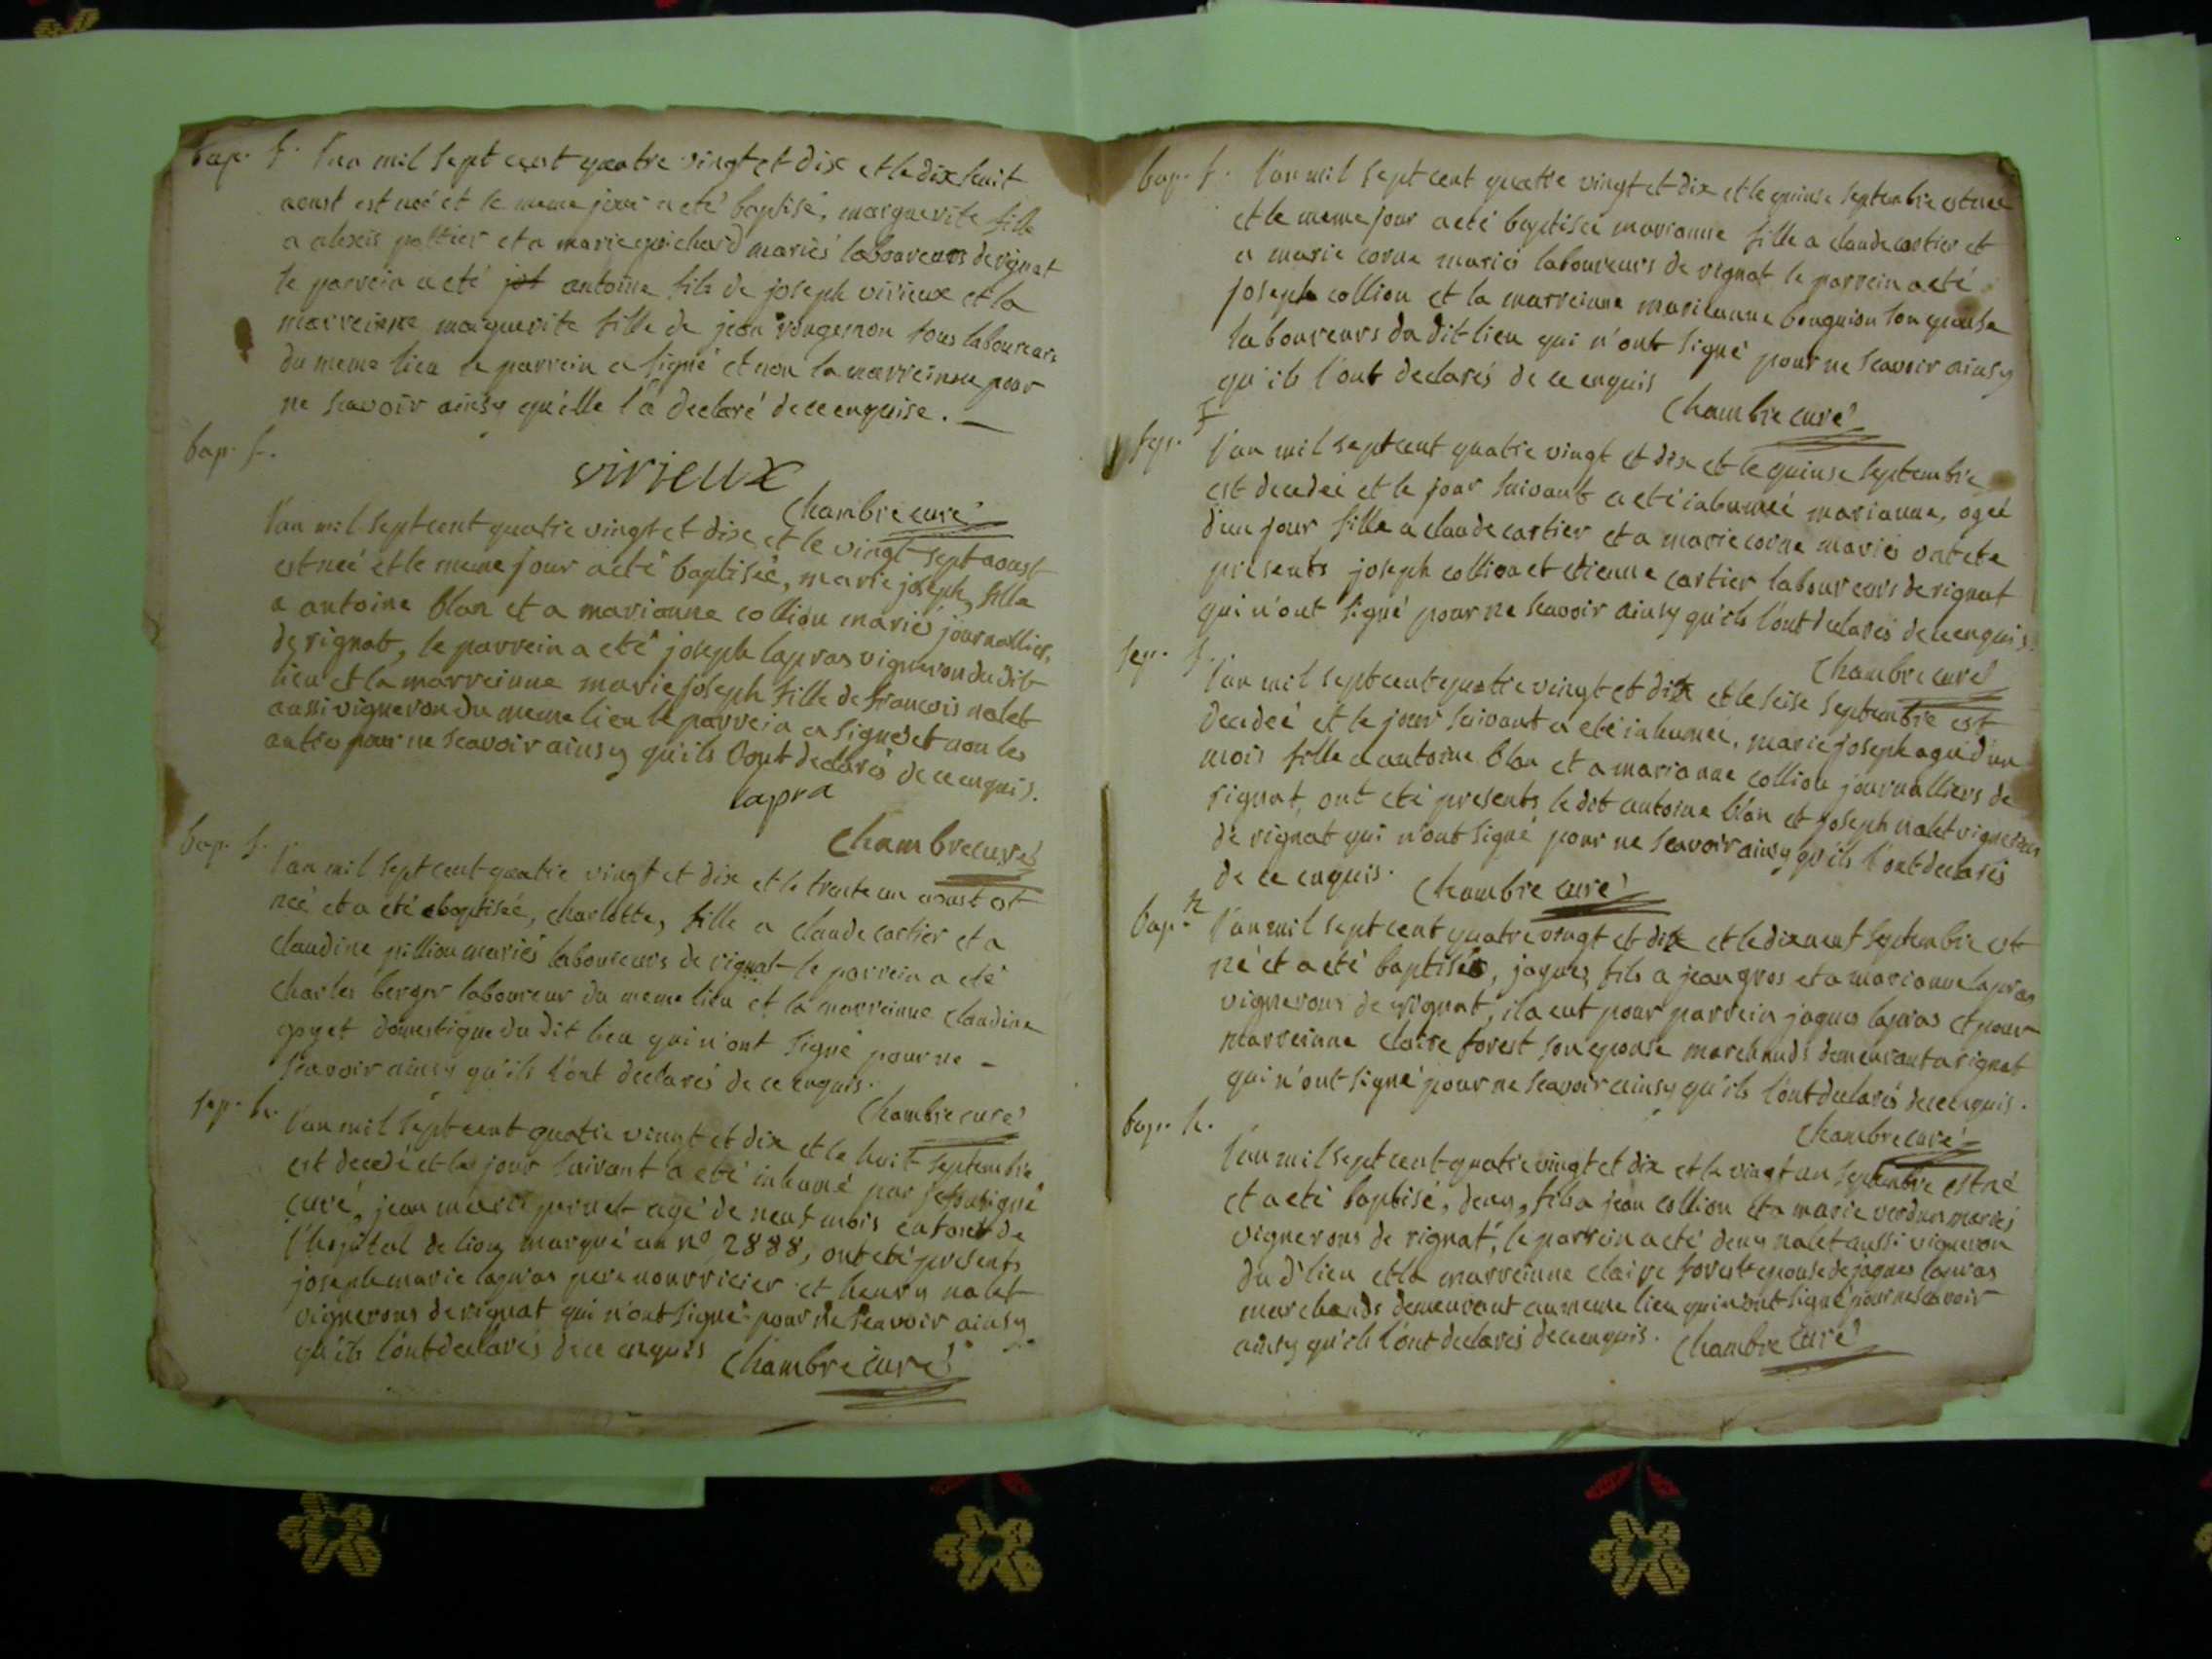 bap. f. l'an mil sept cent quatre vingt et dix et le dix huit
aoust est neé et le meme jour a eté baptisé, marguerite fille
a alexis pottier et a marie guichard mariés laboureurs de rignat
le parrein a eté jos antoine fils de joseph virieux et la
marreinne marguerite fille de jean rougemon tous laboureurs
du meme lieu le parrein a signé et non la marreinne pour
ne scavoir ainsy qu'elle l'a declaré de ce enquise.
bap. f.
virieux
chambre curé
l'an mil sept cent quatre vingt et dix et le vingt sept aoust
est neé et le meme jour a eté baptiseé, marie joseph, fille
a antoine blan et a marianne collion mariés journallier,
de rignat, le parrein a eté joseph lapras vigneron du dit
lieu et la marreinne marie joseph fille de francois nalet
aussi vigneron du meme lieu le parrein a signé et non les
autres pour ne scavoir ainsy qu'ils l'ont declarés de ce enquis.
lapra
chambre curé
bap. f.
l'an mil sept cent quatre vingt et dix et le trente un aoust est
neé et a eté baptiseé, charlotte, fille a claude cartier et a
claudine pillion mariés laboureurs de rignat le parrein a eté
charles berger laboureur du meme lieu et la marreinne claudine
goyet domestique du dit lieu qui n'ont signé pour ne
scavoir ainsy qu'ils l'ont declarés de ce enquis.
chambre curé
sep. h.
l'an mil sept cent quatre vingt et dix et le huit septembre
est decedé et le jour suivant a eté inhumé par je soussigné
curé, jean marie pernet agé de neuf mois enfant de
l'hopital de lion marqué au nº 2888, ont eté presents
joseph marie lapras pere nourricier et henry nalet
vignerons de rignat qui n'ont signé pour ne scavoir ainsy
qu'ils l'ont declarés de ce enquis chambre curé
bap. f. l'an mil sept cent quatre vingt et dix et le quinse septembre est neé
et le meme jour a eté baptiseé marianne fille a claude cartier et
a marie corne mariés laboureurs de rignat le parrein a eté
joseph collion et la marreinne marieanne bouguion son epouse
laboureurs du dit lieu qui n'ont signé pour ne scavoir ainsy
qu'ils l'ont declarés de ce enquis
chambre curé
sep. f
l'an mil sept cent quatre vingt et dix et le quinse septembre
est decedeé et le jour suivant a eté inhumeé marianne, ageé
d'un jour fille a claude cartier et a marie corne mariés ont eté
presents joseph collion et etienne cartier laboureurs de rignat
qui n'ont signé pour ne scavoir ainsy qu'ils l'ont declarés de ce enquis.
chambre curé
sep. f.
l'an mil sept cent quatre vingt et dix et le seise septembre est
decedeé et le jour suivant a eté inhumeé, marie joseph ageé d'un
mois fille a antoine blan et a marianne collion journalliers de
rignat, ont eté presents le dit antoine blan et joseph nalet vignerons
de rignat qui n'ont signé pour ne scavoir ainsy qu'ils l'ont declarés
de ce enquis. chambre curé
bap. h
l'an mil sept cent quatre vingt et dix et le dix neuf septembre est
né et a eté baptisé, jaques, fils a jean gros et a marianne lapras
vignerons de rignat, il a eut pour parrein jaques lapras et pour
marreinne claire forest son epouse marchands demeurant a rignat
qui n'ont signé pour ne scavoir ainsy qu'ils l'ont declarés de ce enquis.
chambre curé
bap. h.
l'an mil sept cent quatre vingt et dix et le vingt un septembre est né
et a eté baptisé, deny, fils a jean collion et a marie verdun mariés
vignerons de rignat, le parrein a eté deny nalet aussi vigneron
du d' lieu et la marreinne claire forest epouse de jaques lapras
marchands demeurant au meme lieu qui n'ont signé pour ne scavoir
ainsy qu'ils l'ont declarés de ce enquis. chambre curé